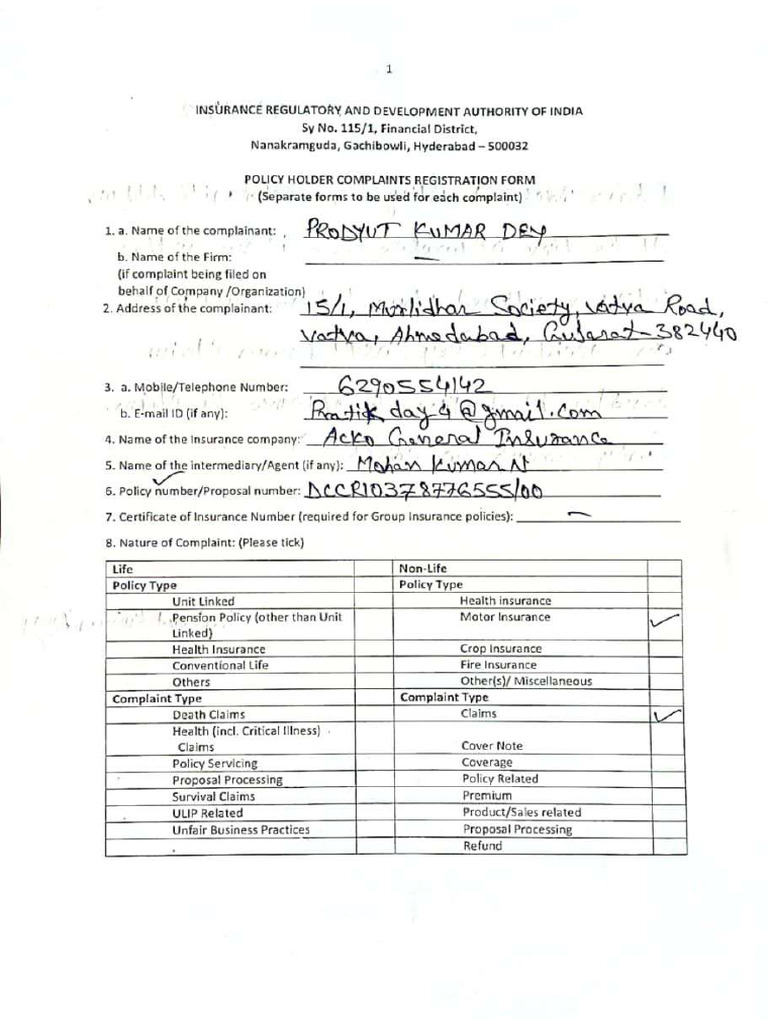 1
INSURANCE REGULATORY AND DEVELOPMENT AUTHORITY OF INDIA
Sy No. 115/1, Financial District,
Nanakramguda, Gachibowli, Hyderabad – 500032
POLICY HOLDER COMPLAINTS REGISTRATION FORM
(Separate forms to be used for each complaint)
1. a. Name of the complainant: PRODYUT KUMAR DEY
b. Name of the Firm: —
(if complaint being filed on
behalf of Company /Organization)
2. Address of the complainant: 15/1, Murlidhar Society, Vatva Road,
Vatva, Ahmedabad, Gujarat-382440
3. a. Mobile/Telephone Number: 6290554142
b. E-mail ID (if any): Pratik day4@gmail.com
4. Name of the Insurance company: Acko General Insurance
5. Name of the intermediary/Agent (if any): Mohan Kumar N
6. Policy number/Proposal number: DCCR10378776555/00
7. Certificate of Insurance Number (required for Group Insurance policies): —
8. Nature of Complaint: (Please tick)
Life Non-Life
Policy Type Policy Type
Unit Linked Health insurance
Pension Policy (other than Unit Motor Insurance ✓
Linked)
Health Insurance Crop Insurance
Conventional Life Fire Insurance
Others Other(s)/ Miscellaneous
Complaint Type Complaint Type
Death Claims Claims ✓
Health (incl. Critical Illness)
Claims Cover Note
Policy Servicing Coverage
Proposal Processing Policy Related
Survival Claims Premium
ULIP Related Product/Sales related
Unfair Business Practices Proposal Processing
Refund